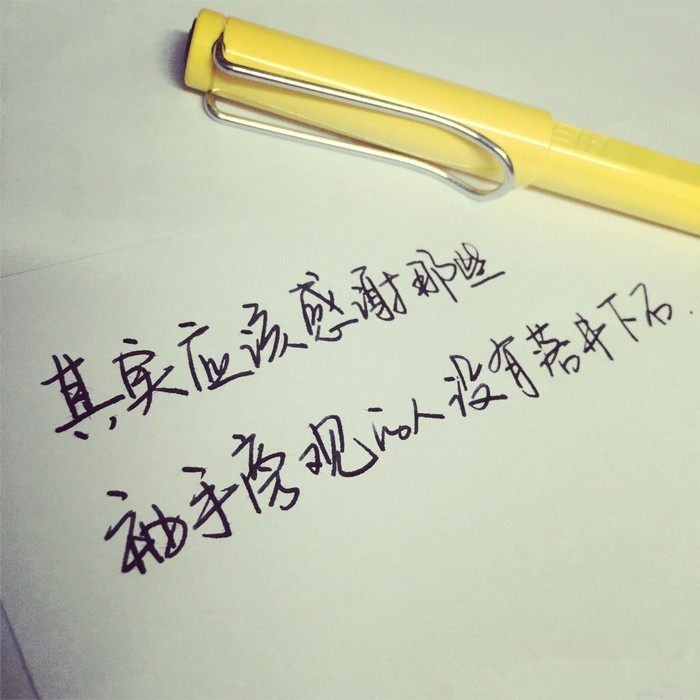 其实应该感谢那些
袖手旁观的人没有落井下石.